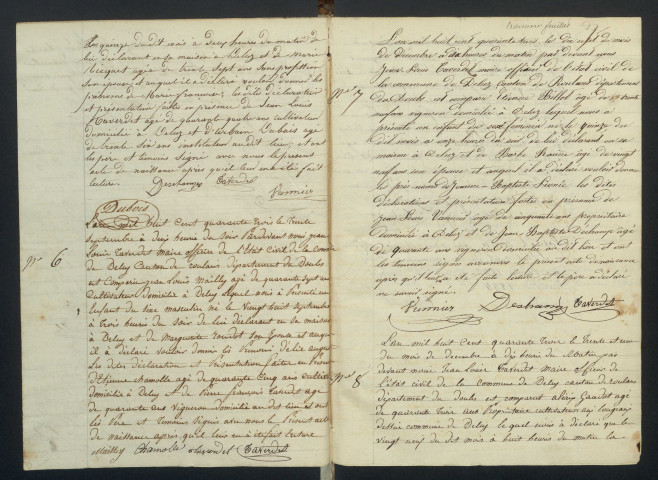 du dit mois à deux heures du matin de
lui déclarant en sa maison à Deluz et de Marie
agée de trente sept ans sans profession
son épouse et auquel il a déclaré vouloir donner les
prénoms de Marie françoise; les dites déclaration
et présentation faites en présence de Jean Louis
Taverdet agé de quarante quatre ans cultivateur
domicilié à Deluz et d'Urbain Dubois agé
de trente six ans instituteur audit lieu; et ont
les père et témoins signé avec nous le présent
acte de naissance après qu'il leur en a été fait
lecture. Deschamps Taverdet
Vannier
Dubois
n° 6
L'an mil huit cent quarante trois le trente
septembre à dix heures du soir Pardevant nous jean
Louis Taverdet Maire officier de l'Etat civil de la Commune
de Deluz Canton de roulans département du Doubs
est Comparu jean Louis Mailly agé de quarante sept ans
Cultivateur domicilié à Deluz lequel nous a présenté un
Enfant du sexe masculin né le Vingt huit septembre
à trois heures du soir de lui déclarant en sa maison
à Deluz et de Marguerite son Epouse et auquel
il a déclaré vouloir donner les Prenoms
Les dites déclaration et Présentation faites en présence
d'Etienne Chamolle agé de quarante Cinq ans cultivateur
domicilié à Deluz et de Pierre françois Taverdet agé
de quarante ans Vigneron domicilié au dit lieu et ont
les Père et Temoins Signés avec nous le Present acte
de naissance après qu'il leur en a été fait lecture
Mailly Chamolle Taverdet Taverdet
n° 7
L'an mil huit cent quarante trois le dix sept du mois
de Décembre à dix heures du matin par devant nous
Jean Louis Taverdet maire officier de l'état civil de
la commune de Deluz canton de Roulans département
du Doubs est comparu
vigneron domicilié à Deluz lequel nous a
présenté un enfant du sexe féminin né le quinze du
dit mois à onze heures du soir de lui déclarant en sa
maison à Deluz et de Barbe agée de vingt
neuf ans son épouse et auquel il a déclaré vouloir donner
les prénoms de Jeanne-Baptiste les dites
déclaration et présentation faites en présence de
Jean Pierre Vannier agé de cinquante ans propriétaire
domicilié à Deluz et de Jean Baptiste Deschamps agé
de quarante ans vigneron domicilié au dit lieu et ont
les témoins signé avec nous le présent acte de naissance
après qu'il leur en a été fait lecture et le père a déclaré
ne savoir signer.
Vannier Deschamps Taverdet
n° 8
L'an mil huit cent quarante trois le trente et un
du mois de décembre à dix heures du Matin par
devant nous jean Louis Taverdet maire officier de
l'état civil de la Commune de Deluz canton de roulans
département du doubs est comparut alexis Gaudet agé
de quarante trois ans Propriétaire cultivateur au
dessus commune de Deluz le quel nous a déclaré que le
vingt neuf du dit mois à huit heures du matin la